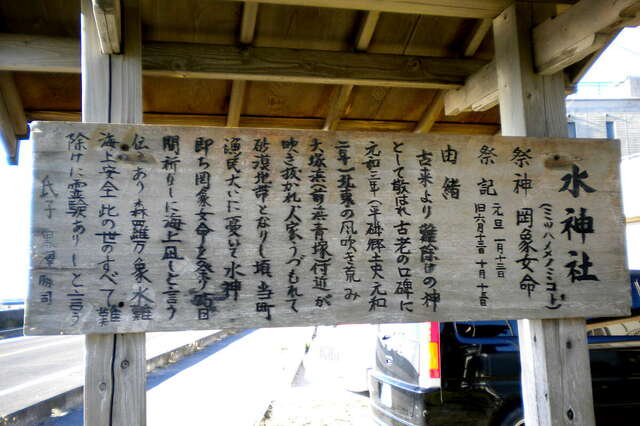 水神社
祭神 岡象女命
(ミツハノメノミコト)
祭記 元旦 一月十三日
旧六月十三日 十月十三日
由緒
古来より難除けの神
として敬はれ古老の口碑に
元和三年(平磯郷土史元和
二年)乱暴の風吹き荒み
大塚浜(前浜青塚付近)が
吹き抜かれ人家うづもれて
砂漠地帯となりし頃当町
漁民大いに憂いて水神
即ち岡象女命を祭り
間祈りしに海上凪しと言う
伝えあり森羅万象水難
海上安全此の世のすべて難
除けに霊験ありしと言う
氏子